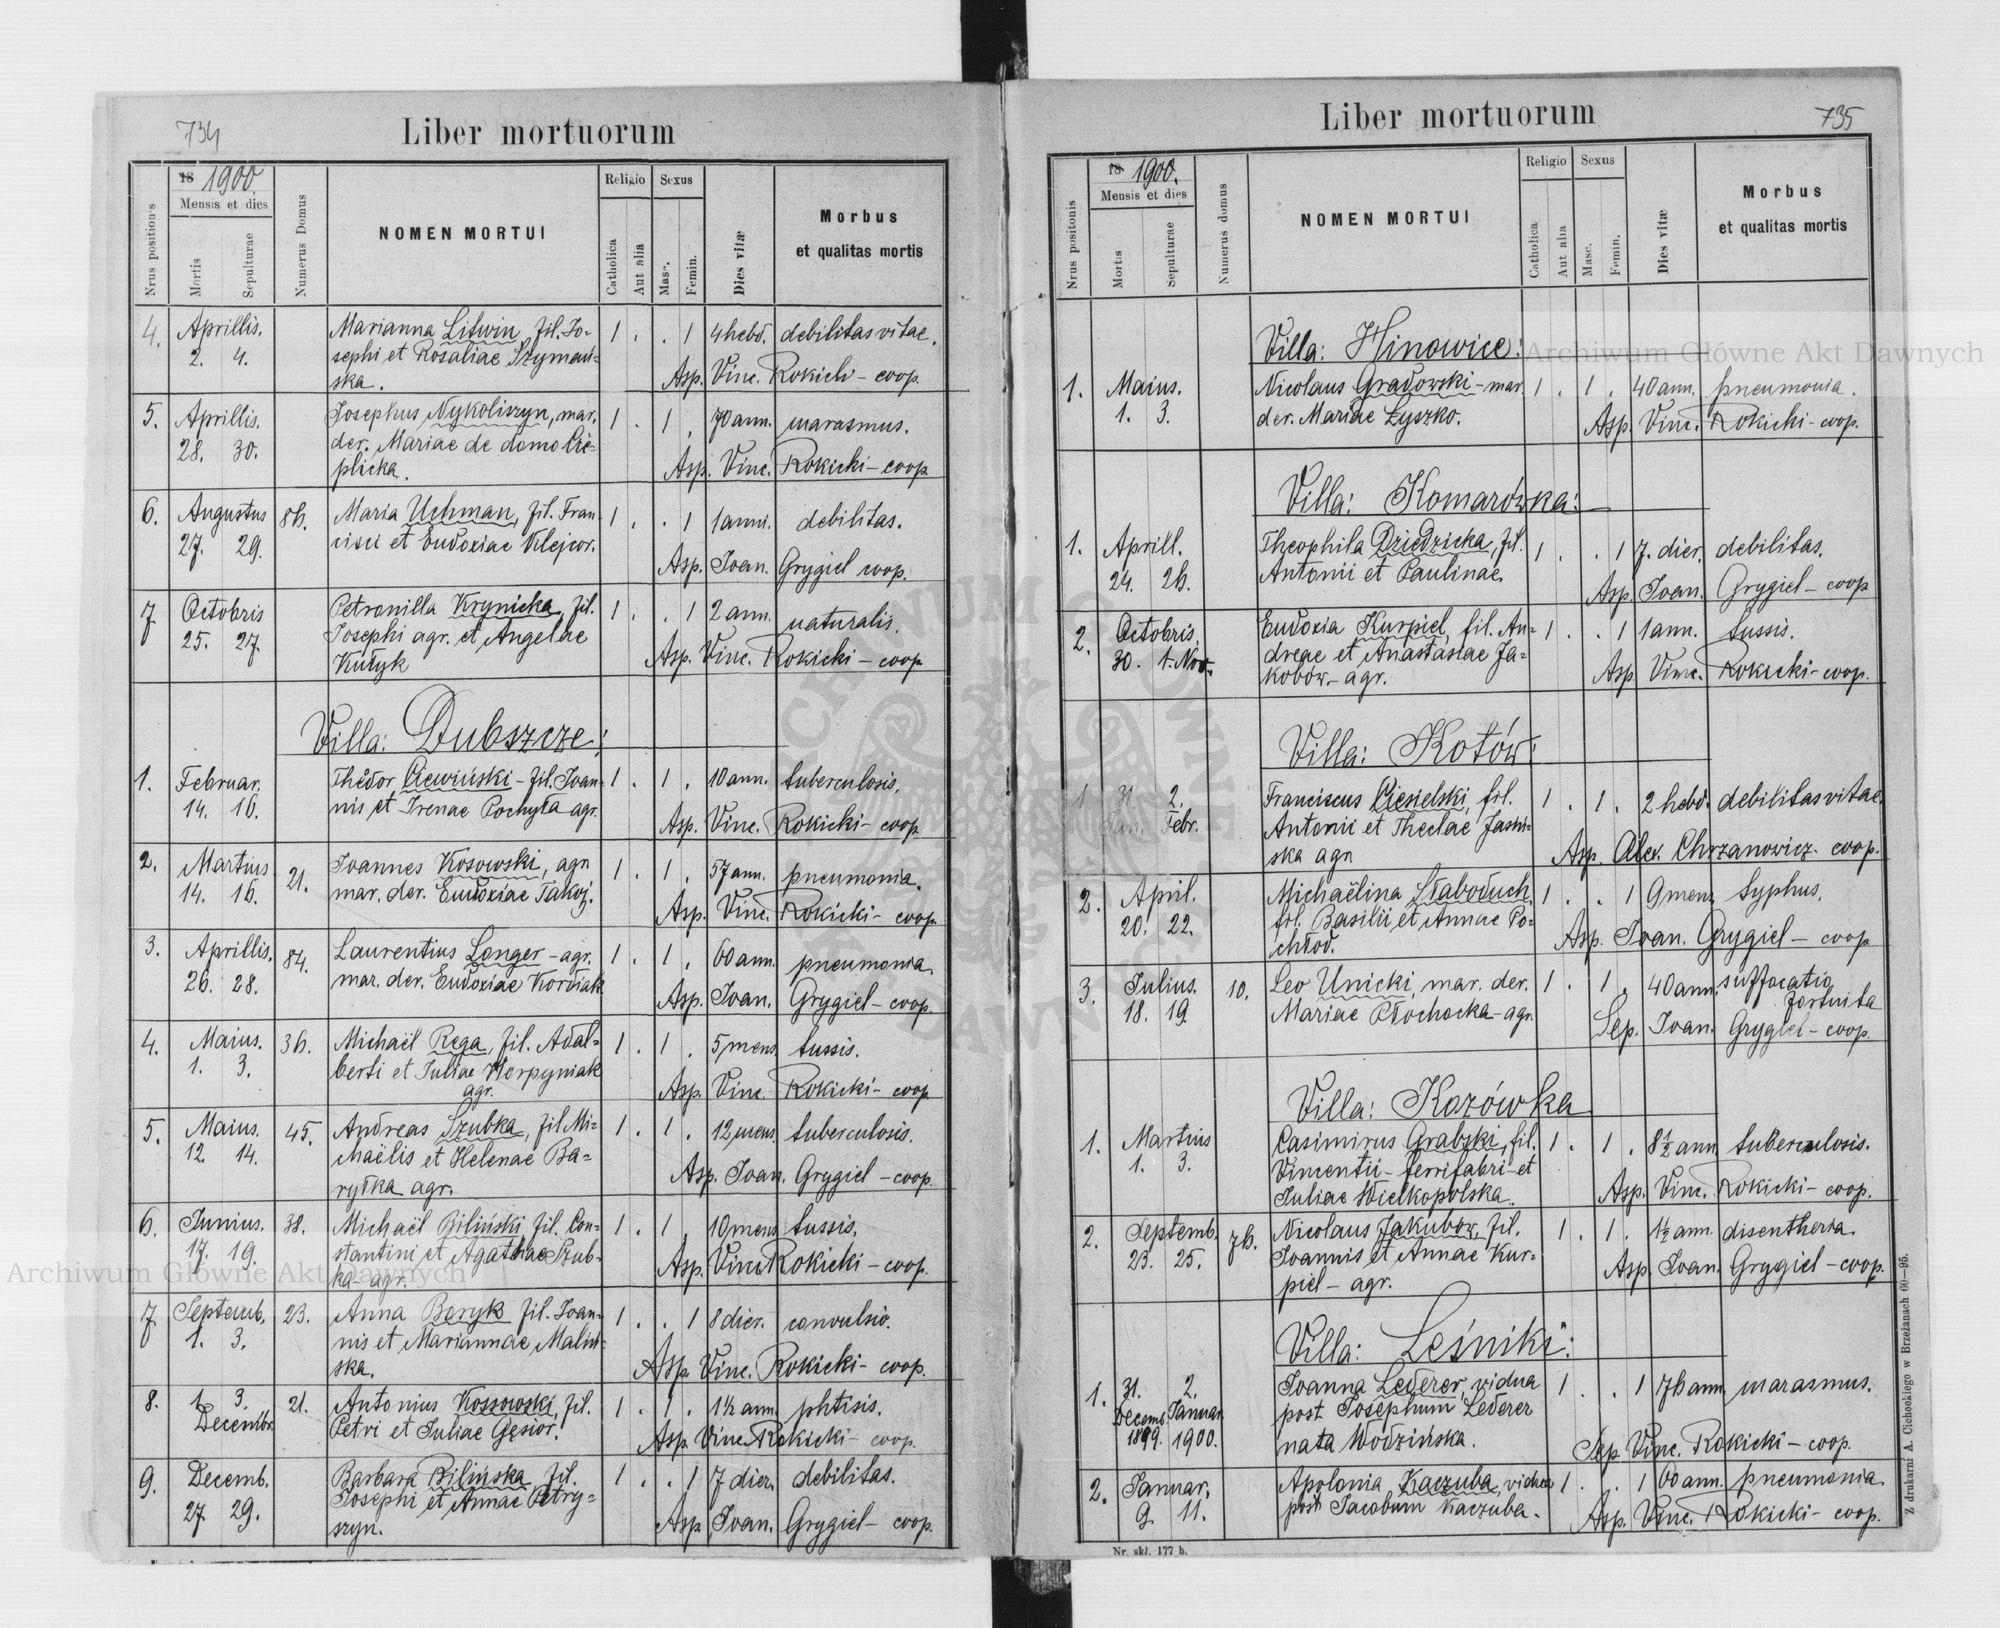 734
Liber mortuorum
18 1900.
Mensis et dies
Nrus positionis
Mortis
Sepulturae
Numerus Domus
NOMEN MORTUI
Religio
Sexus
Catholica
Aut alia
Masc.
Femin.
Dies vitæ
Morbus
et qualitas mortis
4. Aprillis. Marianna Litwin, fil. Jo- 1 . . 1 4 hebd. debilitas vitae.
2. 4. sephi et Rosaliae Szymań-
ska. Asp. Vinc. Rokicki - coop.
5. Aprillis. Josephus Nykoliszyn, mar. 1 . 1 . 70 ann. marasmus.
28. 30. der. Mariae de domo Cie-
plicka. Asp. Vinc. Rokicki - coop.
6. Augustus 86. Maria Uchman, fil. Fran- 1 . . 1 1 anni. debilitas.
27. 29. cisci et Eudoxiae
Asp. Joan. Grygiel coop.
7 Octobris Petronilla Krynicka, fil. 1 . . 1 2 ann. naturalis.
25. 27. Josephi agr. et Angelae
Kutyk Asp. Vinc. Rokicki - coop
Villa: Dubszcze:
1. Februar. Theodor - fil. Joan- 1 . 1 . 10 ann. tuberculosis.
14. 16. nis et Irenae Pochyła agr.
Asp. Vinc. Rokicki - coop
2. Martius 21. Joannes Kosowski, agr. 1 . 1 . 57 ann. pneumonia.
14. 16. mar. der. Eudoxiae
Asp. Vinc. Rokicki - coop.
3. Aprillis. 84. Laurentius Longer - agr. 1 . 1 . 60 ann. pneumonia.
26. 28. mar. der. Eudoxiae Kordiak
Asp. Joan. Grygiel - coop
4. Maius. 36. Michaël Rega, fil. Adal- 1 . 1 . 5 mens. tussis.
1. 3. berti et Juliae Horpyniak
agr. Asp. Vinc. Rokicki - coop
5. Maius. 45. Andreas Szubka, fil. Mi- 1 . 1 . 12 mens. tuberculosis.
12. 14. chaëlis et Helenae Ba-
ryłka agr. Asp. Joan. Grygiel - coop.
6. Junius. 38. Michaël Biliński fil. Con- 1 . 1 . 19 mens. tussis.
17. 19. stantini et Agathae Szub-
ka - agr. Asp. Vinc. Rokicki - coop.
7 Septemb. 23. Anna Baryk fil. Joan- 1 . . 1 8 dier. convulsio.
1. 3. nis et Mariannae Maliń-
ska. Asp. Vinc. Rokicki - coop.
8. 1. 3. 21. Antonius Kossowski, fil. 1 . 1 . 1½ ann. phtisis.
Decembr. Petri et Juliae Gęsior.
Asp. Vinc. Rokicki - coop.
9. Decemb. Barbara Bilińska, fil. 1 . . 1 7 dier. debilitas.
27. 29. Josephi et Annae Petry-
szyn. Asp. Joan. Grygiel - coop.
735
Liber mortuorum
18 1900.
Mensis et dies
Nrus positonis
Mortis
Sepulturae
Numerus domus
NOMEN MORTUI
Religio
Sexus
Catholica
Aut alia
Masc.
Femin.
Dies vitæ
Morbus
et qualitas mortis
Villa: Hinowice:
1. Maius. Nicolaus Gradowski - mar. 1 . 1 . 40 ann. pneumonia.
1. 3. der. Mariae Łyszko. Asp. Vinc. Rokicki - coop.
Villa: Komarówka:
1. Aprill. Theophila Dziedzicka, fil. 1 . . 1 7. dier. debilitas.
24. 26. Antonii et Paulinae.
Asp. Joan. Grygiel - coop
2. Octobris. Eudoxia Kurpiel, fil. An- 1 . . 1 1 ann. tussis.
30. 1. Nov. dreae et Anastasiae Ja-
kobów - agr. Asp. Vinc. Rokicki - coop.
Villa: Kotów:
1 31. 2. Franciscus Ciesielski, fil. 1 . 1 . 2 hebd. debilitas vitae.
Jan. Febr. Antonii et Theclae Jasiń-
ska agr. Asp. Alex. Chrzanowicz. coop.
2. April. Michaëlina Słaboduch, 1 . . 1 9 mens. typhus.
20. 22. fil. Basilii et Annae Po-
chłod. Asp. Joan. Grygiel - coop
3. Julius. 10. Leo Unicki, mar. der. 1 . 1 . 40 ann. suffocatio
18. 19. Mariae Płochocka - agr. fortuita
Sep. Joan. Grygiel - coop.
Villa: Kozówka
1. Martius Casimirus Grabski, fil. 1 . 1 . 8½ ann. tuberculosis.
1. 3. Vincentii - ferrifabri - et
Juliae Wielkopolska. Asp. Vinc. Rokicki - coop.
2. Septemb. 76. Nicolaus Jakubow, fil. 1 . 1 . 1½ ann. disentheria.
23. 25. Joannis et Annae Kur-
piel - agr. Asp. Joan. Grygiel - coop.
Villa: Leśniki:
1. 31. 2. Joanna Lederer, vidua 1 . . 1 76 ann. marasmus.
Decemb. Januar. post Josephum Lederer
1899. 1900. nata Wodzińska. Sep. Vinc. Rokicki - coop.
2. Januar. Apolonia Kaczuba, vidua 1 . . 1 60 ann. pneumonia.
9. 11. post Jacobum Kaczuba. Asp. Vinc. Rokicki - coop.
Nr. skł. 177 b.
Z drukarni A. Cichockiego w Brzeżanach 60-95.
Archiwum Główne Akt Dawnych
Archiwum Główne Akt Dawnych